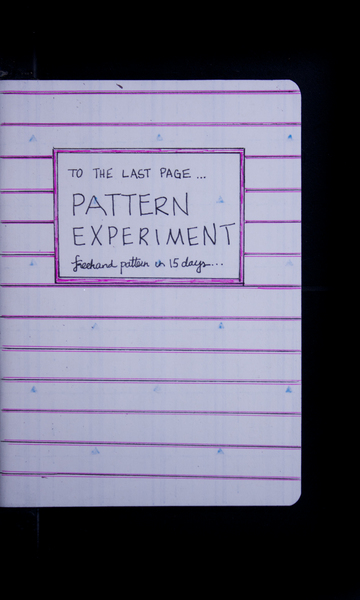 TO THE LAST PAGE ...
PATTERN
EXPERIMENT
freehand pattern in 15 days...